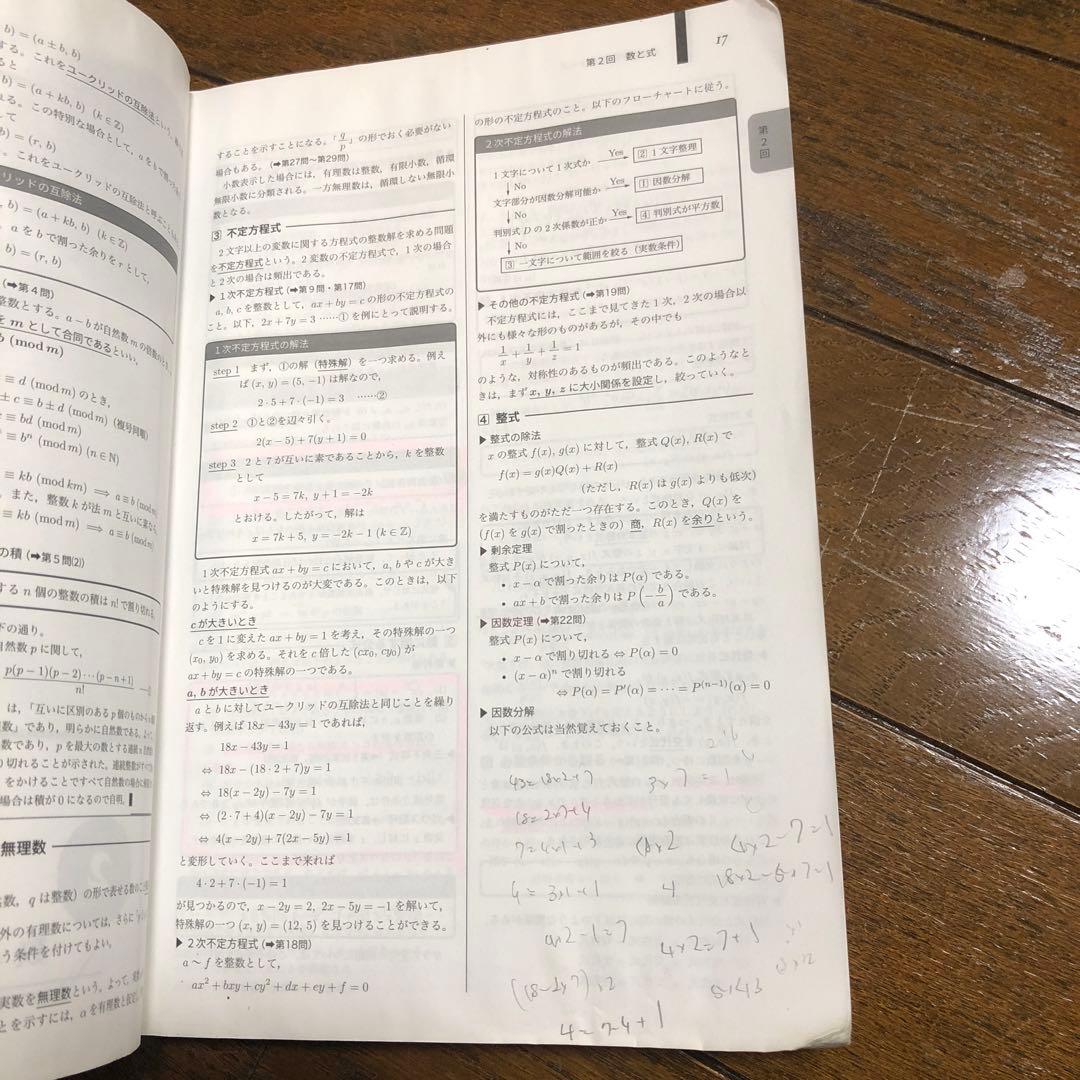 b) = (a ± b, b)
する。これをユークリッドの互除法という。
b) = (a + kb, b) (k∈ℤ)
れる。この特別な場合として，aをbで
b) = (r, b)
。これをユークリッドの互除法と呼ぶこと
リッドの互除法
, b) = (a + kb, b) (k∈ℤ)
，aをbで割った余りをrとして，
b) = (r, b)
(➡第4問)
整数とする。a−bが自然数mの倍数のとき，
をmとして合同であるといい，
b (mod m)
≡ d (mod m) のとき，
± c ≡ b ± d (mod m) (複号同順)
c ≡ bd (mod m)
ⁿ ≡ bⁿ (mod m) (n∈ℕ)
≡ kb (mod km) ⟹ a ≡ b (mod m)
また，整数kが法mと互いに素なら，
≡ kb (mod m) ⟹ a ≡ b (mod m)
の積 (➡第5問(2))
する n 個の整数の積は n! で割り切れる。
下の通り。
自然数pに関して，
p(p−1)(p−2)⋯(p−n+1)
n!
は，「互いに区別のあるp個のものから
数」であり，明らかに自然数である。
数であり，pを最大の数とする連続n
り切れることが示された。連続整数が
をかけることですべて自然数の場合に
場合は積が0になるので自明。
無理数
然数，qは整数) の形で表せる数のこと
外の有理数については，さらに
う条件を付けてもよい。
実数を無理数という。よって，
とを示すには，αを有理数と仮定
第2回 数と式 17
第2回
することを示すことになる。「q/p」の形でおく必要がない
場合もある。(➡第27問〜第29問)
小数表示した場合には，有理数は整数，有限小数，循環
無限小数に分類される。一方無理数は，循環しない無限小
数となる。
3 不定方程式
2文字以上の変数に関する方程式の整数解を求める問題
を不定方程式という。2変数の不定方程式で，1次の場合
と2次の場合は頻出である。
▶1次不定方程式 (➡第9問・第17問)
a, b, cを整数として，ax + by = c の形の不定方程式の
こと。以下，2x + 7y = 3 ……① を例にとって説明する。
1次不定方程式の解法
step 1 まず，①の解 (特殊解) を一つ求める。例え
ば (x, y) = (5, −1) は解なので，
2・5 + 7・(−1) = 3 ……②
step 2 ①と②を辺々引く。
2(x − 5) + 7(y + 1) = 0
step 3 2と7が互いに素であることから，kを整数
として
x − 5 = 7k, y + 1 = −2k
とおける。したがって，解は
x = 7k + 5, y = −2k − 1 (k∈ℤ)
1次不定方程式 ax + by = c において，a, bやcが大き
いと特殊解を見つけるのが大変である。このときは，以下
のようにする。
cが大きいとき
cを1に変えた ax + by = 1 を考え，その特殊解の一つ
(x₀, y₀) を求める。それをc倍した (cx₀, cy₀) が
ax + by = c の特殊解の一つである。
a, bが大きいとき
aとbに対してユークリッドの互除法と同じことを繰り
返す。例えば 18x − 43y = 1 であれば，
18x − 43y = 1
⇔ 18x − (18・2 + 7)y = 1
⇔ 18(x − 2y) − 7y = 1
⇔ (2・7 + 4)(x − 2y) − 7y = 1
⇔ 4(x − 2y) + 7(2x − 5y) = 1
と変形していく。ここまで来れば
4・2 + 7・(−1) = 1
が見つかるので，x − 2y = 2, 2x − 5y = −1 を解いて，
特殊解の一つ (x, y) = (12, 5) を見つけることができる。
▶2次不定方程式 (➡第18問)
a〜fを整数として，
ax² + bxy + cy² + dx + ey + f = 0
の形の不定方程式のこと。以下のフローチャートに従う。
2次不定方程式の解法
1文字について1次式か Yes 2 1文字整理
No
文字部分が因数分解可能か Yes 1 因数分解
No
判別式Dの2次係数が正か Yes 4 判別式が平方数
No
3 一文字について範囲を絞る (実数条件)
▶その他の不定方程式 (➡第19問)
不定方程式には，ここまで見てきた1次，2次の場合以
外にも様々な形のものがあるが，その中でも
1/x + 1/y + 1/z = 1
のような，対称性のあるものが頻出である。このようなと
きは，まずx, y, zに大小関係を設定し，絞っていく。
4 整式
▶整式の除法
xの整式 f(x), g(x) に対して，整式 Q(x), R(x) で
f(x) = g(x)Q(x) + R(x)
(ただし，R(x) は g(x) よりも低次)
を満たすものがただ一つ存在する。このとき，Q(x) を
(f(x) を g(x) で割ったときの) 商，R(x) を余りという。
▶剰余定理
整式 P(x) について，
• x − α で割った余りは P(α) である。
• ax + b で割った余りは P(−b/a) である。
▶因数定理 (➡第22問)
整式 P(x) について，
• x − α で割り切れる ⇔ P(α) = 0
• (x − α)ⁿ で割り切れる
⇔ P(α) = P′(α) = ⋯ = P⁽ⁿ⁻¹⁾(α) = 0
▶因数分解
以下の公式は当然覚えておくこと。
43=18×2+7
3×7 = 1
18=2×7+4
7=4×1+3
4×2−7=1
4=3×1+1
4
18×2−5×7=1
4×2−1=7
4×2=7+1
(18−2×7)×2
4=7−4+1